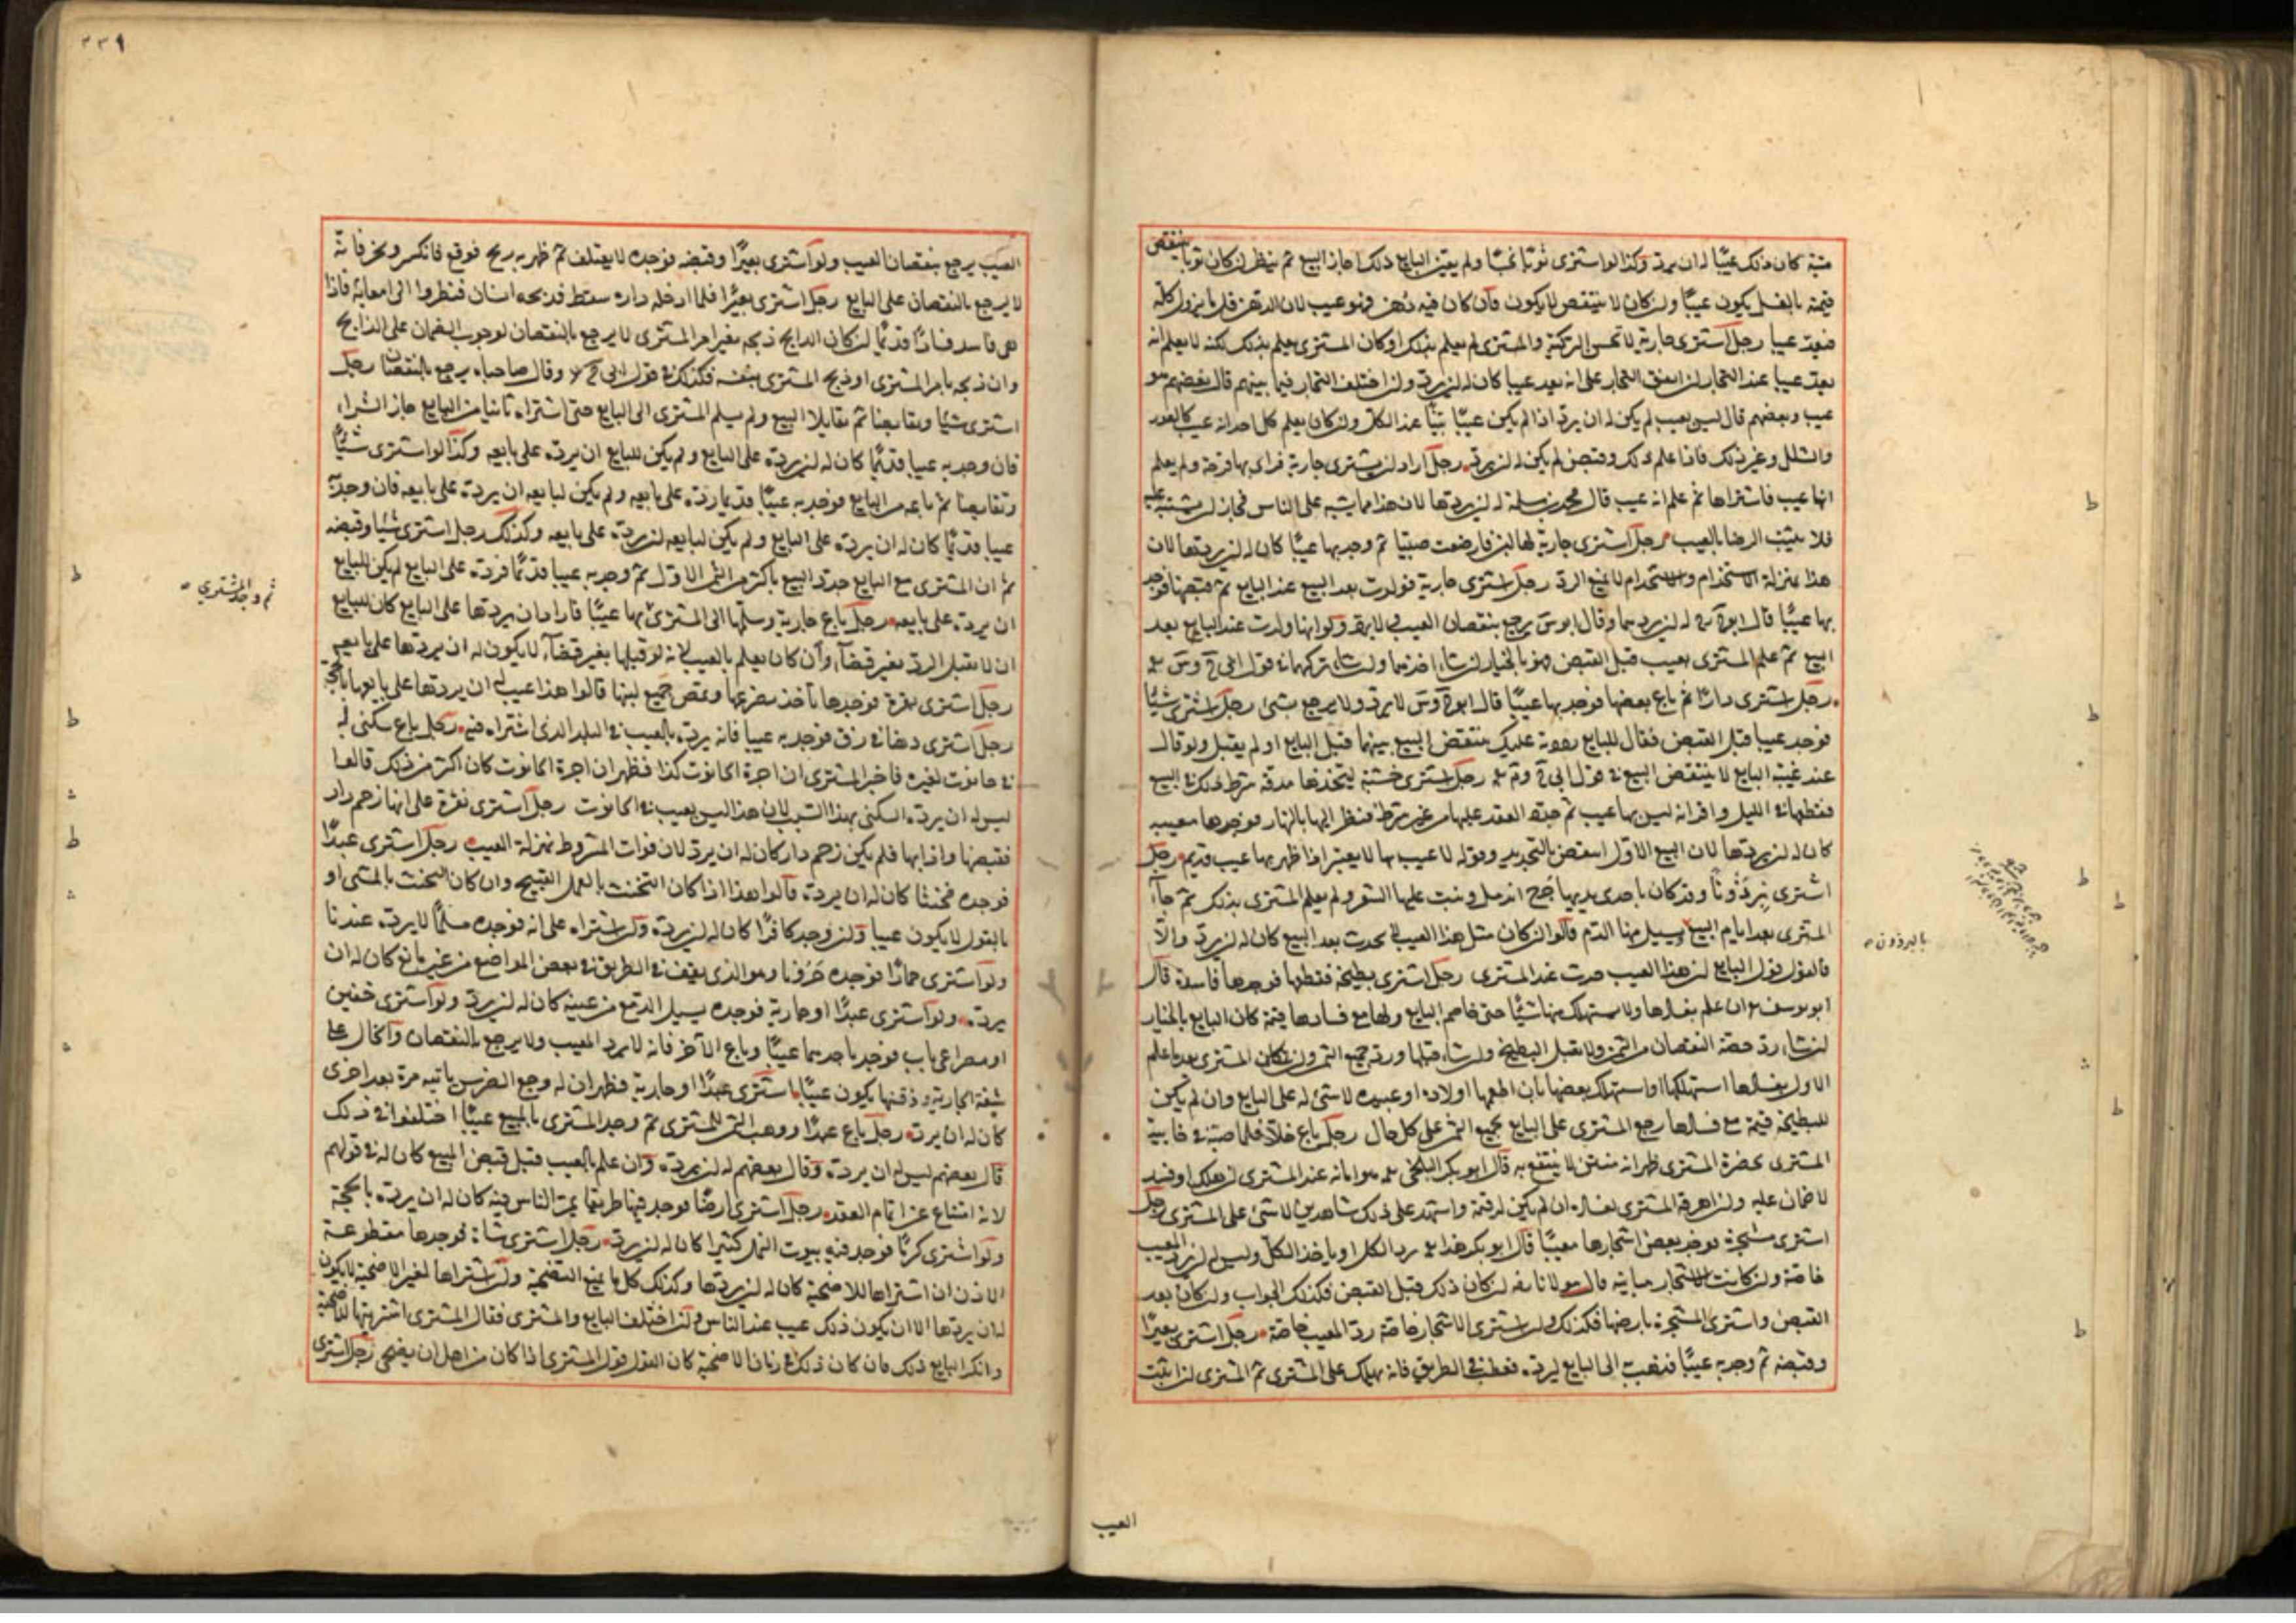 مثبة كان ذلك عيبا له ان يرد وكذا لو اشترى ثوبا نجسا ولم يبين البايع ذلك جاز البيع ثم ينظر ان كان ثوبا ينتقص
قيمته بالغسل يكون عيبا وان كان لا ينتقص لا يكون فان كان فيه دهن فهو عيب لان الدهن قل ما يزول كله
فيعد عيبا رجل اشترى جارية لا تحسن والمشترى لم يعلم بذلك او كان المشترى يعلم بذلك لكنه لا يعلم انه
يعد عيبا عند التجار ان اتفق التجار على انه يعد عيبا كان له ان يرد وان اختلف التجار فيما بينهم قال بعضهم هو
عيب وبعضهم قال ليس بعيب لم يكن له ان يرد اذا لم يكن عيبا بينا عند الكل وان كان يعلم كل احد انه عيب كالعور
والشلل وغير ذلك فاذا علم ذلك وقبض لم يكن له ان يرد رجل اراد ان يشترى جارية فراى بها قرحة ولم يعلم
انها عيب فاشتراها ثم علم انه عيب قال محمد بن سلمة له ان يردها لان هذا مما يشتبه على الناس فجاز ان يشتبه عليه
فلا يثبت الرضا بالعيب رجل اشترى جارية لها لبن فارضعت صبيا ثم وجد بها عيبا كان له ان يردها لان
هذا بمنزلة الاستخدام والاستخدام لا يمنع الرد رجل اشترى جارية فولدت بعد البيع عند البايع ثم قبضها فوجد
بها عيبا قال له ان يردهما وقال يرجع بنقصان العيب ولا يرد ولو انها ولدت عند البايع بعد
البيع ثم علم المشترى بعيب قبل القبض فهو بالخيار ان شاء اخذهما وان شاء تركهما في قول
رجل اشترى دارا ثم باع بعضها فوجد بها عيبا قال لا يرد ولا يرجع بشئ رجل اشترى شيئا
فوجد عيبا قبل القبض فقال للبايع رددته عليك ينتقض البيع بينهما قبل البايع او لم يقبل ولو قال
عند غيبة البايع لا ينتقض البيع في قول رجل اشترى خشبة ليتخذها مدقة شرط ذلك في البيع
فقطعها في الليل واقر انه ليس بها عيب ثم جدد العقد عليها من غير شرط فنظر اليها بالنهار فوجدها معيبه
كان له ان يردها لان البيع الاول انتقض بالتجديد وقوله لا عيب بها لا يعتبر اذا ظهر بها عيب قديم رجل
اشترى برذونا وقد كان باحدى يديها جرح اندمل ونبت عليها الشعر ولم يعلم المشترى بذلك ثم جاء
المشترى بعد ايام البيع يسيل منها الدم قالوا ان كان مثل هذا العيب لا يحدث بعد البيع كان له ان يرد والا
فالقول قول البايع ان هذا العيب حدث عند المشترى رجل اشترى بطيخة فقطعها فوجدها فاسدة قال
ابو يوسف ان علم بفسادها ولا يستهلك منها شيئا حتى خاصم البايع ولها مع فسادها قيمة كان البايع بالخيار
ان شاء رد حصة النقصان من الثمن ولا يقبل البطيخ وان شاء قبلها ورد جميع الثمن وان كان المشترى بعد ما علم
الاول بفسادها استهلكها او استهلك بعضها بان اطعمها اولاده او عبيده لا شئ له على البايع وان لم يكن
للبطيخة قيمة مع فسادها رجع المشترى على البايع بجميع الثمن على كل حال رجل باع خلا فلما صبه في خابية
المشترى بحضرة المشترى ظهر انه منتن لا ينتفع به قال ابو بكر البلخى هو امانة عند المشترى ان هلك او فسد
لا ضمان عليه وان اهرقه المشترى لفساده ان لم يكن له قيمة واشهد على ذلك شاهدين لا شئ على المشترى رجل
اشترى مشجرة فوجد بعض اشجارها معيبا قال ابو بكر هذا يرد الكل او ياخذ الكل وليس له ان يرد المعيب
خاصة وان كانت الاشجار مباينة قال مولانا ان كان ذلك قبل القبض فكذلك الجواب وان كان بعد
القبض واشترى المشجرة بارضها فكذلك وان اشترى الاشجار خاصة رد المعيب خاصة رجل اشترى بعيرا
وقبضه ثم وجد به عيبا فذهب الى البايع ليرده فعطب في الطريق فانه يهلك على المشترى ثم المشترى ان اثبت
بالبرذون
العيب
٢٣٩
العيب يرجع بنقصان العيب ولو اشترى بعيرا وقبضه فوجده لا يعتلف ثم ظهر به ريح فوقع فانكسر ونحر فانه
لا يرجع بالنقصان على البايع رجل اشترى بعيرا فلما ادخله داره سقط فذبحه انسان فنظروا الى امعائه فاذا
هى فاسدة فسادا قديما ان كان الذابح ذبحه بغير امر المشترى لا يرجع بالنقصان لوجوب الضمان على الذابح
وان ذبحه بامر المشترى او ذبح المشترى بنفسه فكذلك في قول وقال صاحباه يرجع بالنقصان رجل
اشترى شيئا وتقابضا ثم تقايلا البيع ولم يسلم المشترى الى البايع حتى اشتراه ثانيا من البايع جاز الشراء
فان وجد به عيبا قديما كان له ان يرده على البايع ولم يكن للبايع ان يرده على بايعه وكذا لو اشترى شيئا
وتقابضا ثم باعه من البايع فوجد به عيبا قديما رده على بايعه ولم يكن لبايعه ان يرده على بايعه فان وجد به
عيبا قديما كان له ان يرده على البايع ولم يكن لبايعه ان يرده على بايعه وكذلك رجل اشترى شيئا وقبضه
ثم ان المشترى مع البايع جدد البيع باكثر من الثمن الاول ثم وجد به عيبا قديما فرده على البايع لم يكن للبايع
ان يرده على بايعه رجل باع جارية وسلمها الى المشترى بها عيبا فاراد ان يردها على البايع كان للبايع
ثم وجد المشترى
ان لا يقبل الرد بغير قضاء وان كان يعلم بالعيب لانه لو قبلها بغير قضاء لا يكون له ان يردها على بايعه
رجل اشترى بقرة فوجدها تاخذ بضرعها وتمص جميع لبنها قالوا هذا عيب له ان يردها على بايعها بالحجة
رجل اشترى دهنا في زق فوجد به عيبا فانه يرده بالعيب في البلد الذى اشتراه فيه رجل باع سكنى له
في حانوت لغيره فاخبر المشترى ان اجرة الحانوت كذا فظهر ان اجرة الحانوت كان اكثر من ذلك قالوا
ليس له ان يرده السكنى بهذا السبب لان هذا ليس بعيب في الحانوت رجل اشترى نقرة على انها زخم دار
فقبضها واذابها فلم يكن زخم دار كان له ان يرد لان فوات المشروط بمنزلة العيب رجل اشترى عبدا
فوجده مخنثا كان له ان يرده قالوا هذا اذا كان التخنث بالعمل القبيح وان كان التخنث بالمشى او
بالقول لا يكون عيبا وان وجد كافرا كان له ان يرده وان اشتراه على انه فوجده مسلما لا يرده عندنا
ولو اشترى حمارا فوجده حرونا وهو الذى يقف في الطريق في بعض المواضع من غير مانع كان له ان
يرده ولو اشترى عبدا او جارية فوجده يسيل الدمع من عينيه كان له ان يرد ولو اشترى خفين
او مصراعى باب فوجد باحدهما عيبا وباع الآخر فانه لا يرد المعيب ولا يرجع بالنقصان والخال على
شفة الجارية وذقنها يكون عيبا اشترى عبدا او جارية فظهر ان له وجع الضرس ياتيه مرة بعد اخرى
كان له ان يرد رجل باع عبدا ووهب الثمن للمشترى ثم وجد المشترى بالمبيع عيبا اختلفوا في ذلك
قال بعضهم ليس له ان يرده وقال بعضهم له ان يرده وان علم بالعيب قبل قبض المبيع كان له في قولهم
لانه امتناع عن اتمام العقد رجل اشترى ارضا فوجد فيها طريقا يمر الناس فيه كان له ان يرده بالحجة
ولو اشترى كرما فوجد فيه بيوت النمل كثيرا كان له ان يرد رجل اشترى شاة فوجدها مقطوعة
الاذن ان اشتراها للاضحية كان له ان يردها وكذلك كل ما يمنع التضحية وان اشتراها لغير الاضحية لا يكون
له ان يردها الا ان يكون ذلك عيب عند الناس وان اختلف البايع والمشترى فقال المشترى اشتريتها للاضحية
وانكر البايع ذلك فان كان ذلك في زمان الاضحية كان القول قول المشترى اذا كان من اهل ان يضحى رجل اشترى